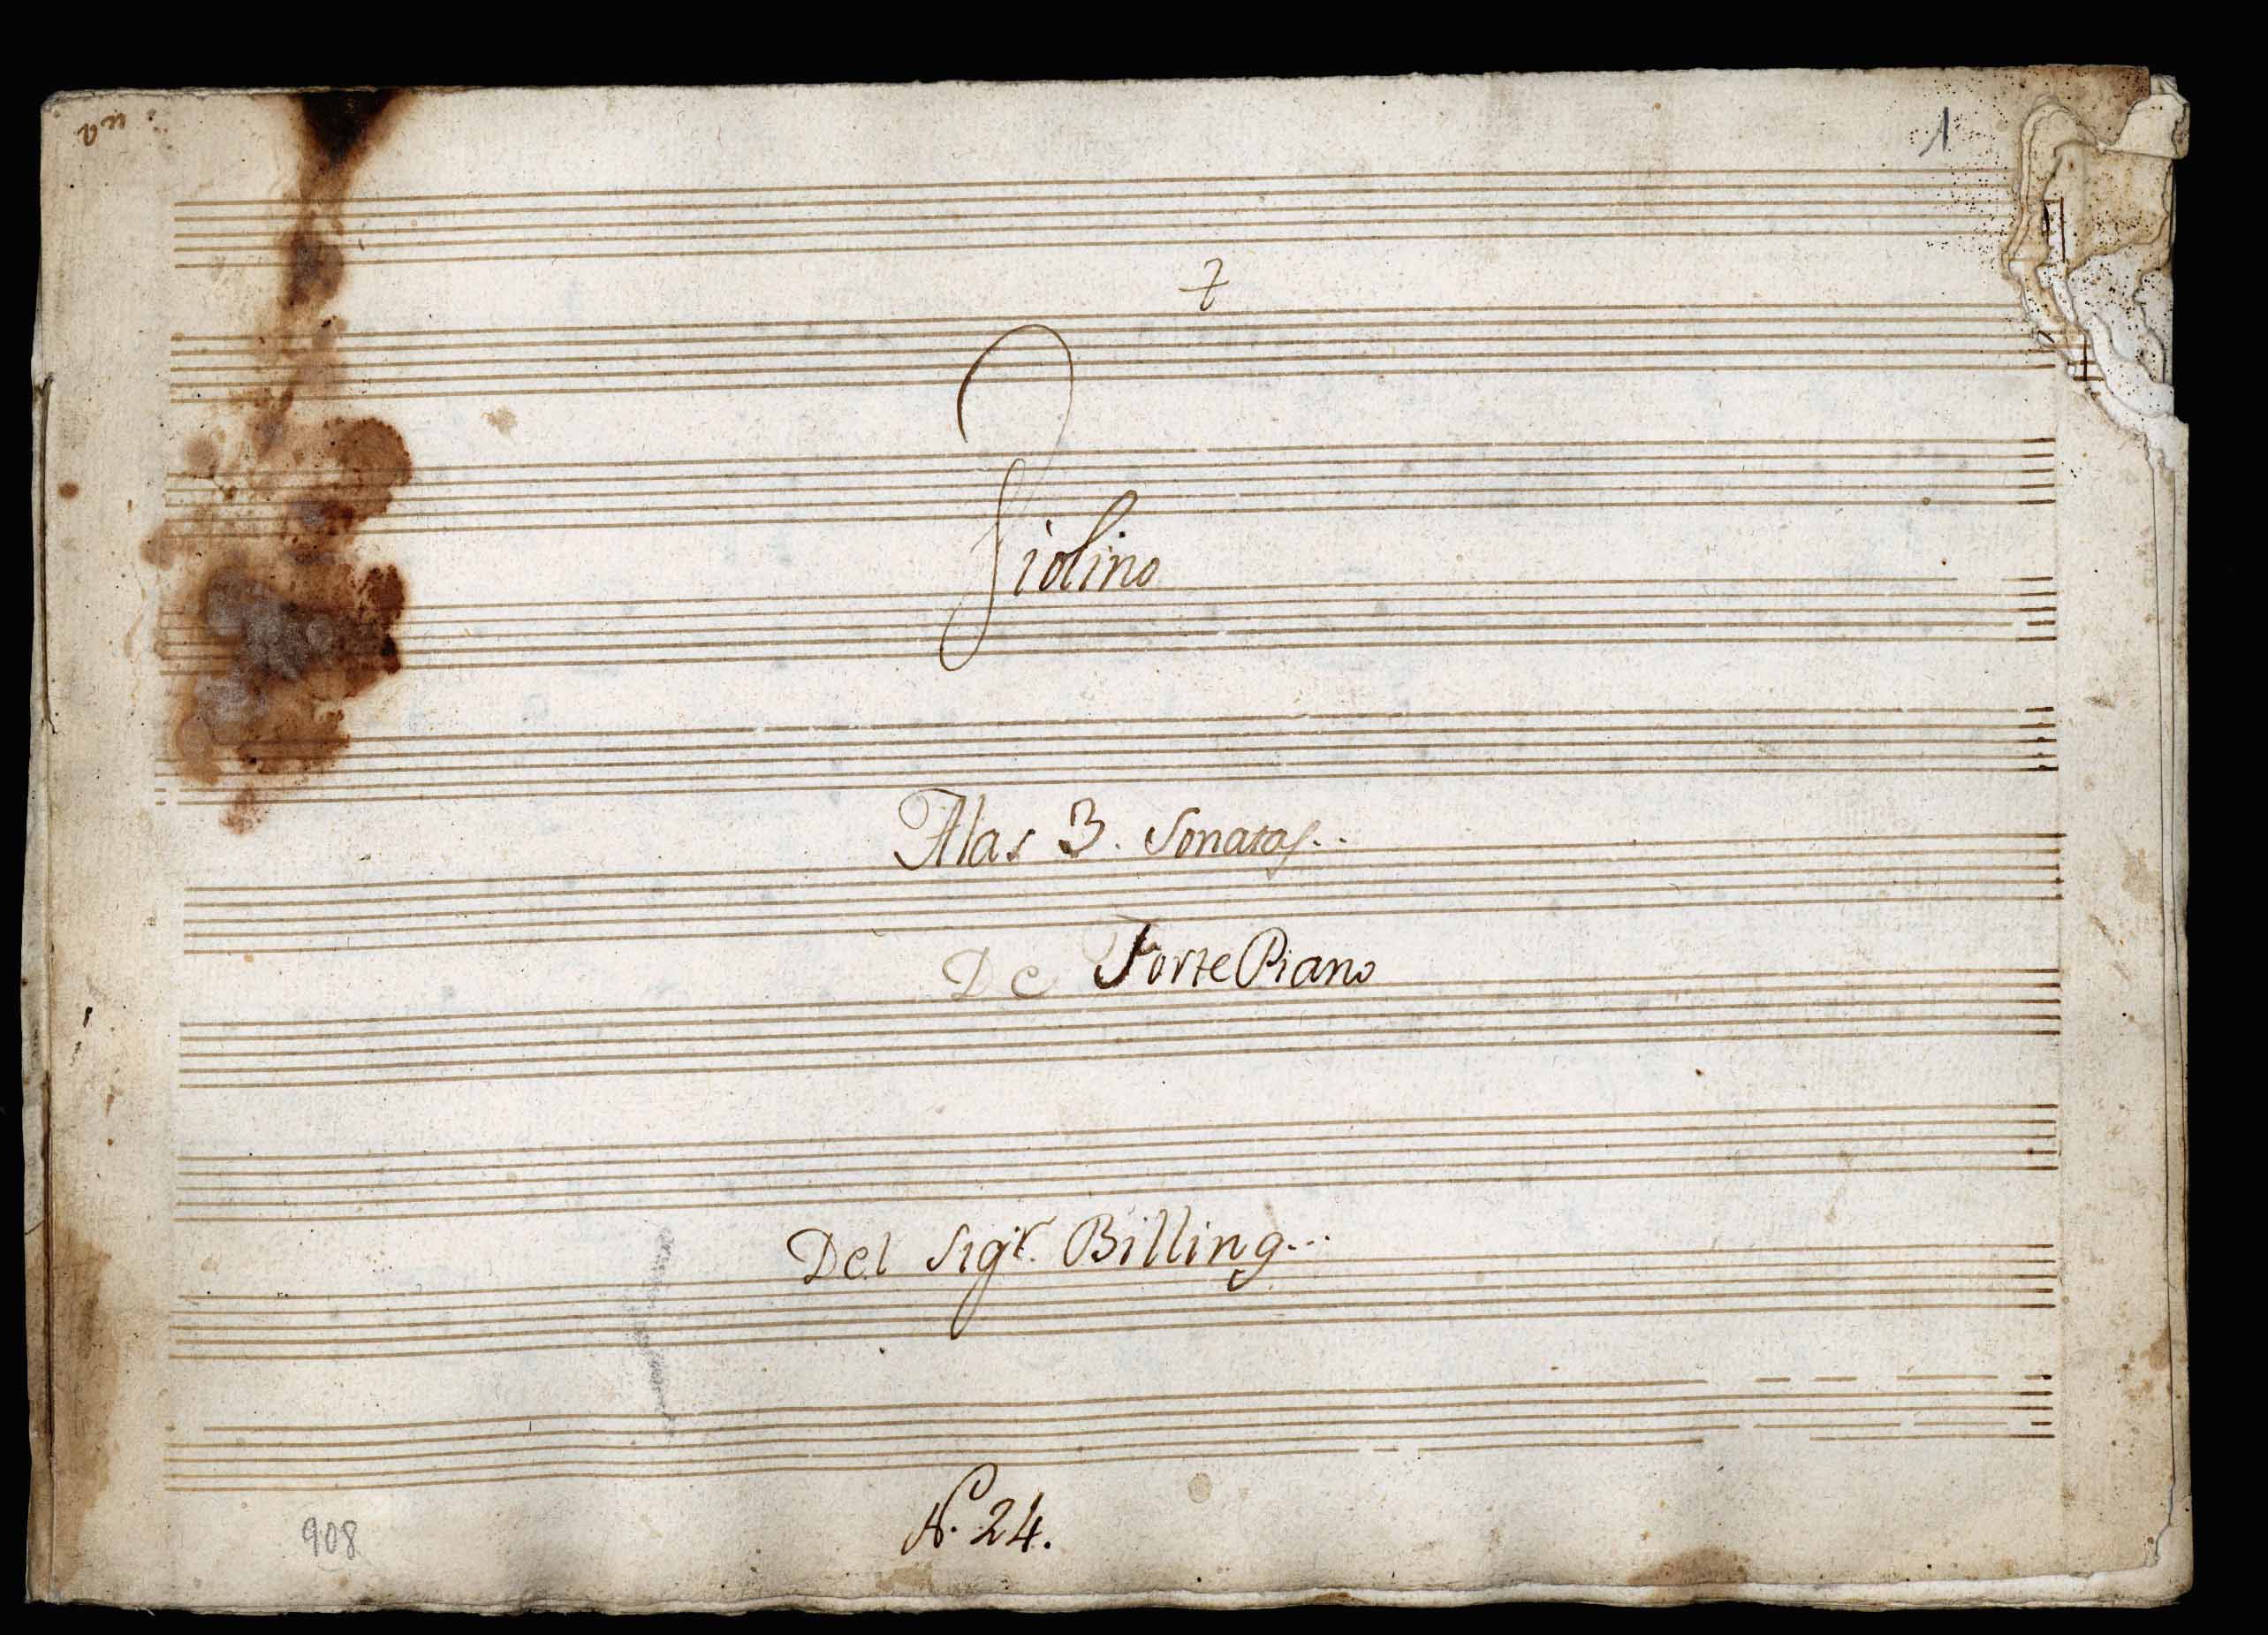 1
Violino
Alas 3. Sonatas..
De Forte Piano
Del Sigr. Billing...
N. 24.
908